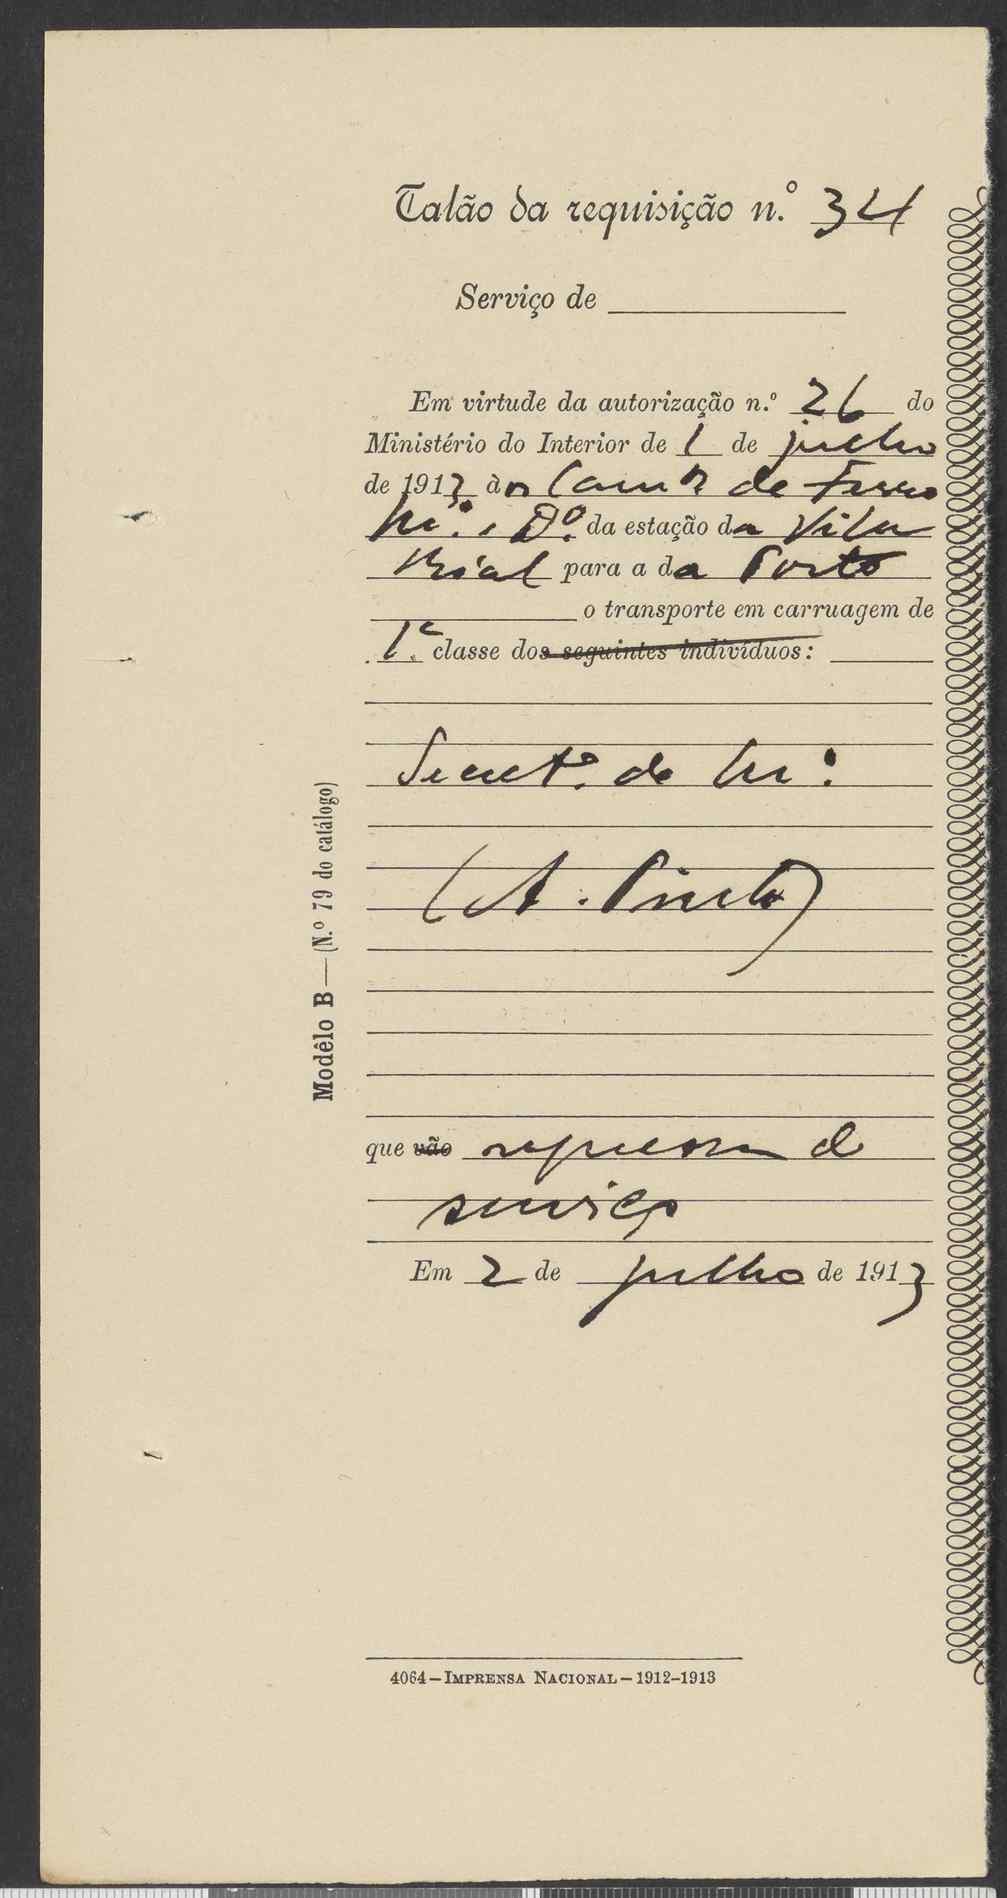 Talão da requisição n.º 34
Serviço de
Em virtude da autorização n.º 26 do
Ministério do Interior de 1 de julho
de 1913 de Ferro
M.º e D.º da estação da Vila
Rial para a da Porto
o transporte em carruagem de
1.ª classe dos seguintes indivíduos:
Secret.º do
(A. Pinto)
que vão regressa de
serviço
Em 2 de julho de 1913
Modêlo B—(N.º 79 do catálogo)
4064—IMPRENSA NACIONAL—1912-1913